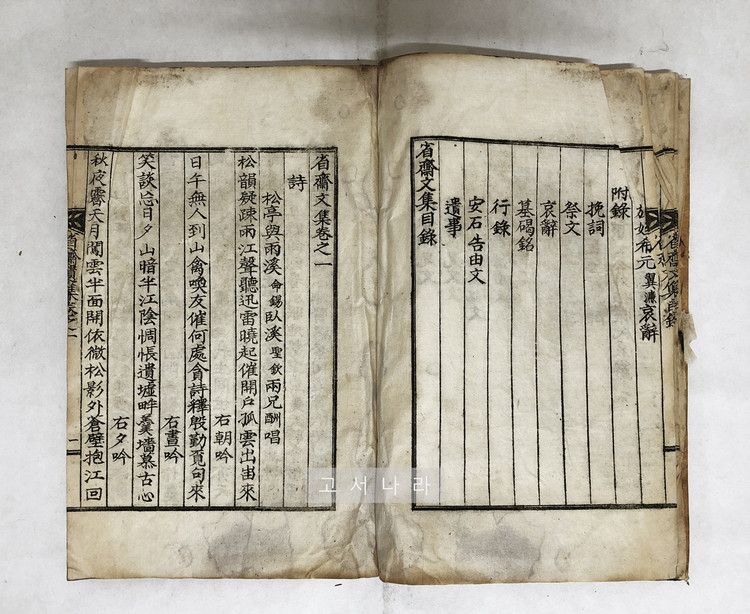 姪希元 翼濂 哀辭
附錄
挽詞
祭文
哀辭
墓碣銘
行錄
安石告由文
遺事
省齋文集目錄
省齋文集卷之一
詩
松亭與雨溪 命錫 臥溪 聖欽 兩兄酬唱
松韻疑疎雨江聲聽迅雷曉起催開戶孤雲出峀來
右朝吟
日午無人到山禽喚友催何處貪詩釋殷勤覓句來
右晝吟
笑談忘日夕山暗半江陰惆悵遺墟畔羹墻慕古心
右夕吟
秋夜霽天月閣雲半面開依微松影外蒼壁抱江回
고서나라